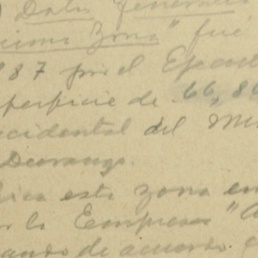 ) Datos Generales
cima Zona" fué
"87 por el Ejecut
perficie de 66,80
ccidental del Mu
Durango.
bica esta zona en
or la Compresa "A
ando de acuerdo